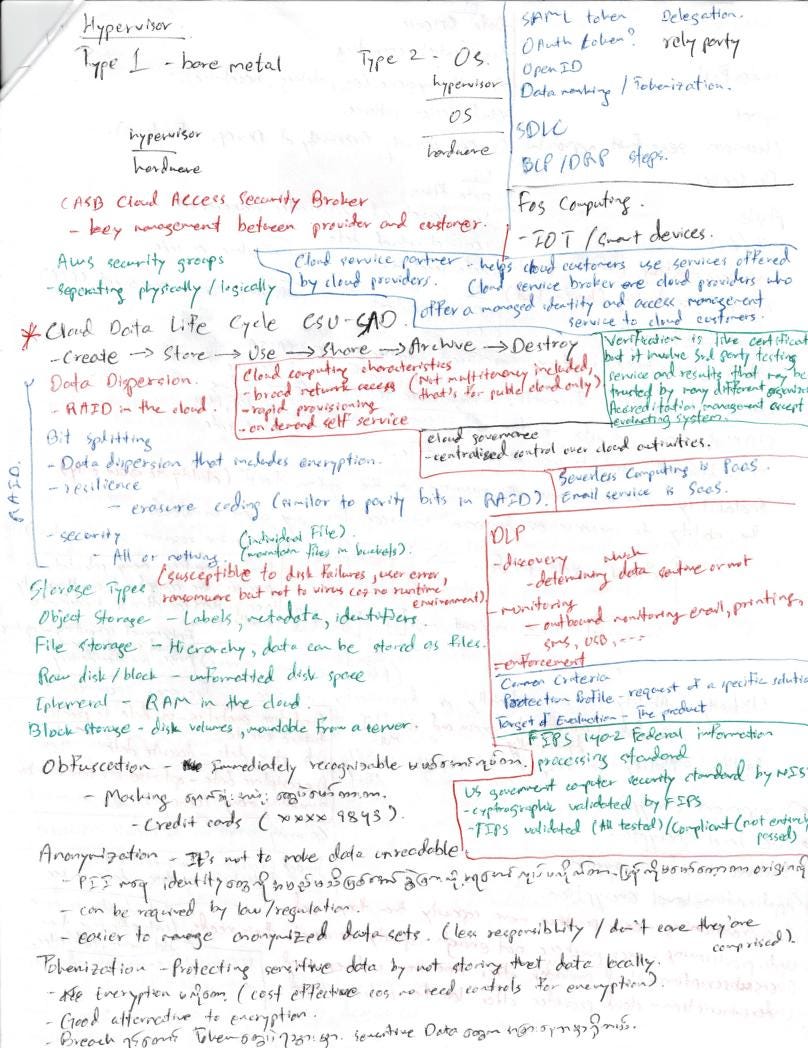 Hypervisor
Type 1 - bare metal
Type 2 - OS.
hypervisor
OS
hardware
hypervisor
hardware
SAML token Delegation.
OAuth token? rely party
OpenID
Data masking / Tokenization.
SDLC
BCP/DRP steps.
Fog Computing.
- IOT / smart devices.
CASB Cloud Access Security Broker
- key management between provider and customer.
AWS security groups
- seperating physically / logically
Cloud service partner - helps cloud customers use services offered
by cloud providers. Cloud service broker are cloud providers who
offer a managed identity and access management
service to cloud customers.
* Cloud Data Life Cycle CSU-SAD
- Create → Store → Use → Share → Archive → Destroy
Verification is like certificat
but it involve 3rd party testing
service and results that may be
trusted by many different organiza
Accreditation, management accept
evaluating system.
Cloud computing characteristics
- broad network access (Not multitenancy included,
that's for public cloud only)
- rapid provisioning
- on demand self service
Data Dispersion.
- RAID in the cloud.
cloud governance
- centralised control over cloud activities.
RAID
Bit splitting
- Data dispersion that includes encryption.
- resilience
- erasure coding (similar to parity bits in RAID).
- security
- All or nothing. (individual File).
(maintain files in buckets).
Severless Computing is PaaS.
Email service is SaaS.
DLP
- discovery
- determining which data sensitive or not
- monitoring
- outbound monitoring email, printing,
sms, USB, ---
- enforcement
Storage Types (susceptible to disk failures, user error,
ransomware but not to virus cos no runtime
environment)
Object Storage - Labels, metadata, identifiers.
File storage - Hierarchy, data can be stored as files.
Raw disk / block - unformatted disk space
Ephemeral - RAM in the cloud.
Block storage - disk volumes, mountable from a server.
Common Criteria
Protection Profile - request of a specific solutio
Target of Evaluation - The product
FIPS 140-2 Federal information
processing standard
US government computer security standard by NIS
- cyptrographic validated by FIPS
- FIPS validated (All tested) / Compliant (not entirely
passed)
Obfuscation - Immediately recognizable
- Masking
- Credit cards (xxxx 9843).
Anonymization - It's not to make data unreadable
- PII identity
- can be required by law/regulation.
- easier to manage anonymized datasets. (less responsiblity / don't care they're
comprised).
Tokenization - Protecting sensitive data by not storing that data locally.
- Encryption (cost effective cos no need controls for encryption).
- Good alternative to encryption.
- Breach Token sensitive Data